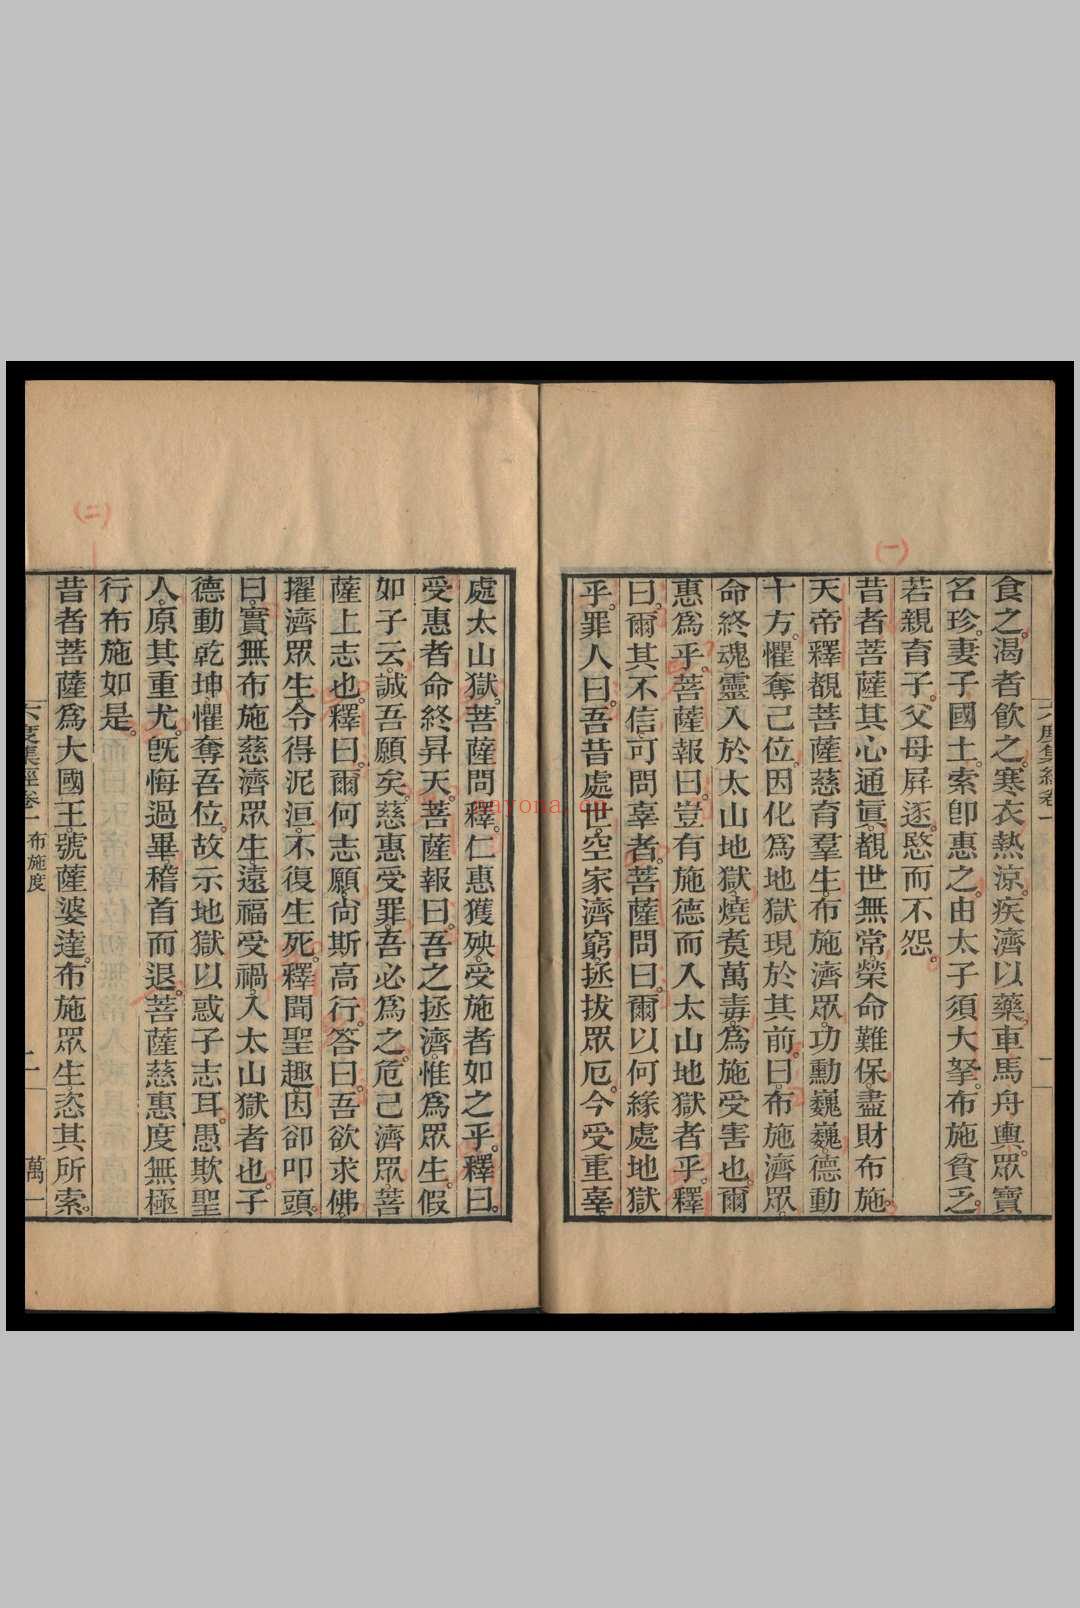 食之。渴者飲之。寒衣熱涼。疾濟以藥。車馬舟輿。眾寶
名珍。妻子國土。索卽惠之。由太子須大拏。布施貧乏。
若親育子。父母屛逐。愍而不怨。
(一)
昔者菩薩其心通眞。覩世無常。榮命難保。盡財布施。
天帝釋覩菩薩慈育羣生。布施濟眾。功勳巍巍。德動
十方。懼奪己位。因化爲地獄現於其前。曰。布施濟眾。
命終魂靈入於太山地獄。燒煑萬毒。爲施受害也。爾
惠爲乎。菩薩報曰。豈有施德而入太山地獄者乎。釋
曰。爾其不信。可問辜者。菩薩問曰。爾以何緣處地獄
乎。罪人曰。吾昔處世。空家濟窮。拯拔眾厄。今受重辜。
六度集經卷一
一
處太山獄。菩薩問釋。仁惠獲殃。受施者如之乎。釋曰。
受惠者命終昇天。菩薩報曰。吾之拯濟。惟爲眾生。假
如子云。誠吾願矣。慈惠受罪。吾必爲之。危己濟眾。菩
薩上志也。釋曰。爾何志願。尙斯高行。答曰。吾欲求佛。
擢濟眾生。令得泥洹。不復生死。釋聞聖趣。因卻叩頭
曰。實無布施慈濟眾生。遠福受禍。入太山獄者也。子
德動乾坤。懼奪吾位。故示地獄以惑子志耳。愚欺聖
人。原其重尤。旣悔過畢。稽首而退。菩薩慈惠度無極
行布施如是。
(二)
昔者菩薩爲大國王。號薩婆達。布施眾生。恣其所索。
六度集經卷一 布施度
二
萬一
nayona.cn